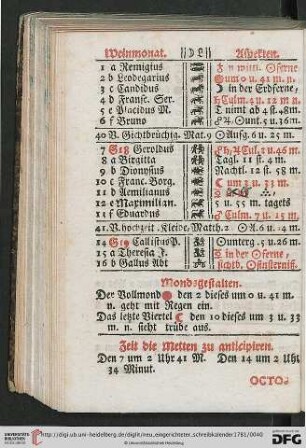 Weinmonat. || DE || Aspekten.
1 a Remigius
2 b Leodegarius ☉um 0 u. 41 m. n.
3 c Candidus ☽ in der Erdferne,
4 d Franst. Ser. ♄ Culm. 4 u. 12 m n
5 e Placidus M. nimt ab 4 st. 8m.
6 f Bruno ♃ ☉unt. 5 u. 36m.
40 V. Gichtbrüchig. Mat. 9 ☉Aufg. 6 u. 25 m.
7 G18 Geroldus Cul. 1 u. 46 m.
8 a Birgitta Tagl. 11 st. 4 m.
9 b Dionysius Nachtl. 12 st. 58 m.
10 c Franc. Borg. ☾ um 3 u. 33 m.
11 d Aemilianus
12 e Maximilian. 5 u. 55 m. tagets
13 f Eduardus ♂ Culm. 7 u. 15 m
41. V. hochzeit. Kleide. Matth. 2 ☉ A. 6 u. 4 m.
14 G19 CallistusP. ☉unterg. 5 u. 26 m
15 a Theresia J. in der ☉ferne,
16 b Gallus Abt sichtb. ☉finsterniß.
Mondsgestalten.
Der Vollmond den 2 dieses um 0 u. 41 m.
n. geht mit Regen ein.
Das letzte Viertel ☾ den 10 dieses um 3 u. 33
m. n. sieht trübe aus.
Zeit die Metten zu anticipiren.
Den 7 um 2 Uhr 41 M. Den 14 um 2 Uhr
34 Minut.
OCTO-
UNIVERSITÄTS-
BIBLIOTHEK
HEIDELBERG
http://digi.ub.uni-heidelberg.de/diglit/neu_eingerichteter_schreibkalender1781/0040
© Universitätsbibliothek Heidelberg
gefördert durch die
DFG